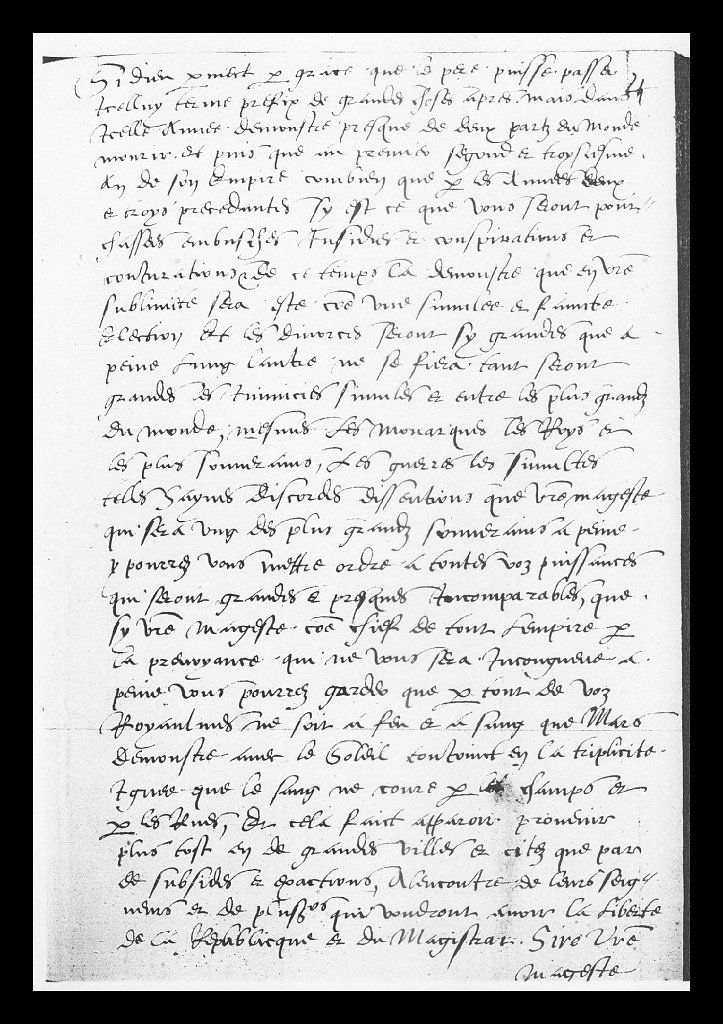 Si dieu permect per grace que le pere puisse passer
Icelluy terme prefix de grandes choses apres mais dans
Icelle Annee demonstre presque de deux partz du Monde
mourir et puis que au premier segond et troysiesme
An de son Empire combien que per les Annees deux
et troys precedantes sy est ce que vous seront pour-
chassees embusches Insidies et conspirations et
coniurations de ce temps la demonstre que en vre
sublimite sera este coe vne simulee et faincte
Election Et les divorces seront sy grandes que a
peine lung lautre ne se fiera tant seront
grandes les Inimicies simules et entre les plus grandz
du monde, mesmes les Monarques les Roys et
les plus souuerains, Les guerres les simultes
celes haynes discordes dissentions que vre mageste
qui sera vng des plus grandz souuerains a peine
y pourrez vous mettre ordre a toutes voz puissances
qui seront grandes et presques Incomparables, que
sy vre mageste coe chief de tout Lempire per
la preuoyance qui ne vous sera Incongneue a
peine vous pourrez garder que per tout de voz
Royaulmes ne soit a feu et a sang que Mars
demonstre auec le Soleil conioinct en la triplicite
Ignee que le sang ne coure per les champs et
per les Rues, Et cela faict apparoir prouenir
plus tost en de grandes villes et citez que par
de subsides et exactions, Alencontre de leurs seig-
neurs et de plusrs qui voudront auoir la liberte
de la Republicque et du Magistrat. Sire Vre
mageste